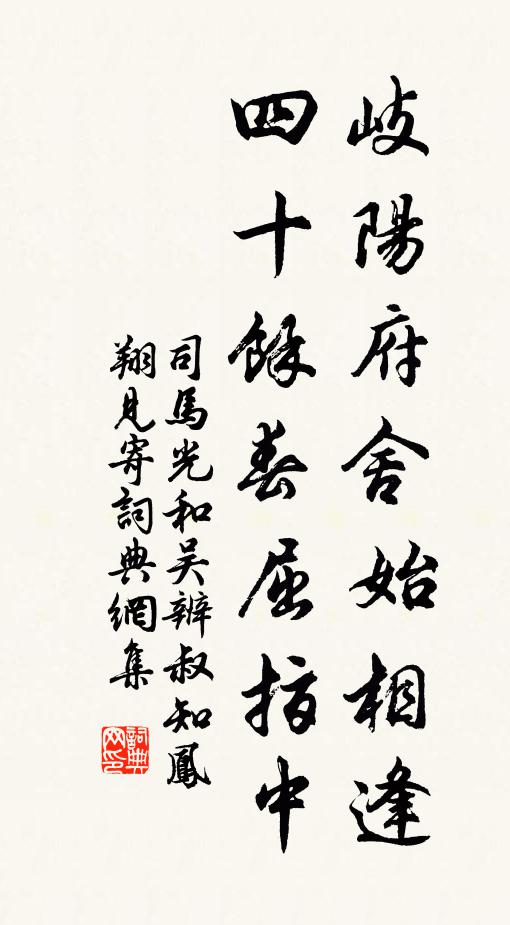 岐陽府舍始相逢
四十餘春屈指中
司馬光和吴辨叔知鳳
翔見寄詞典網集
詞典网印